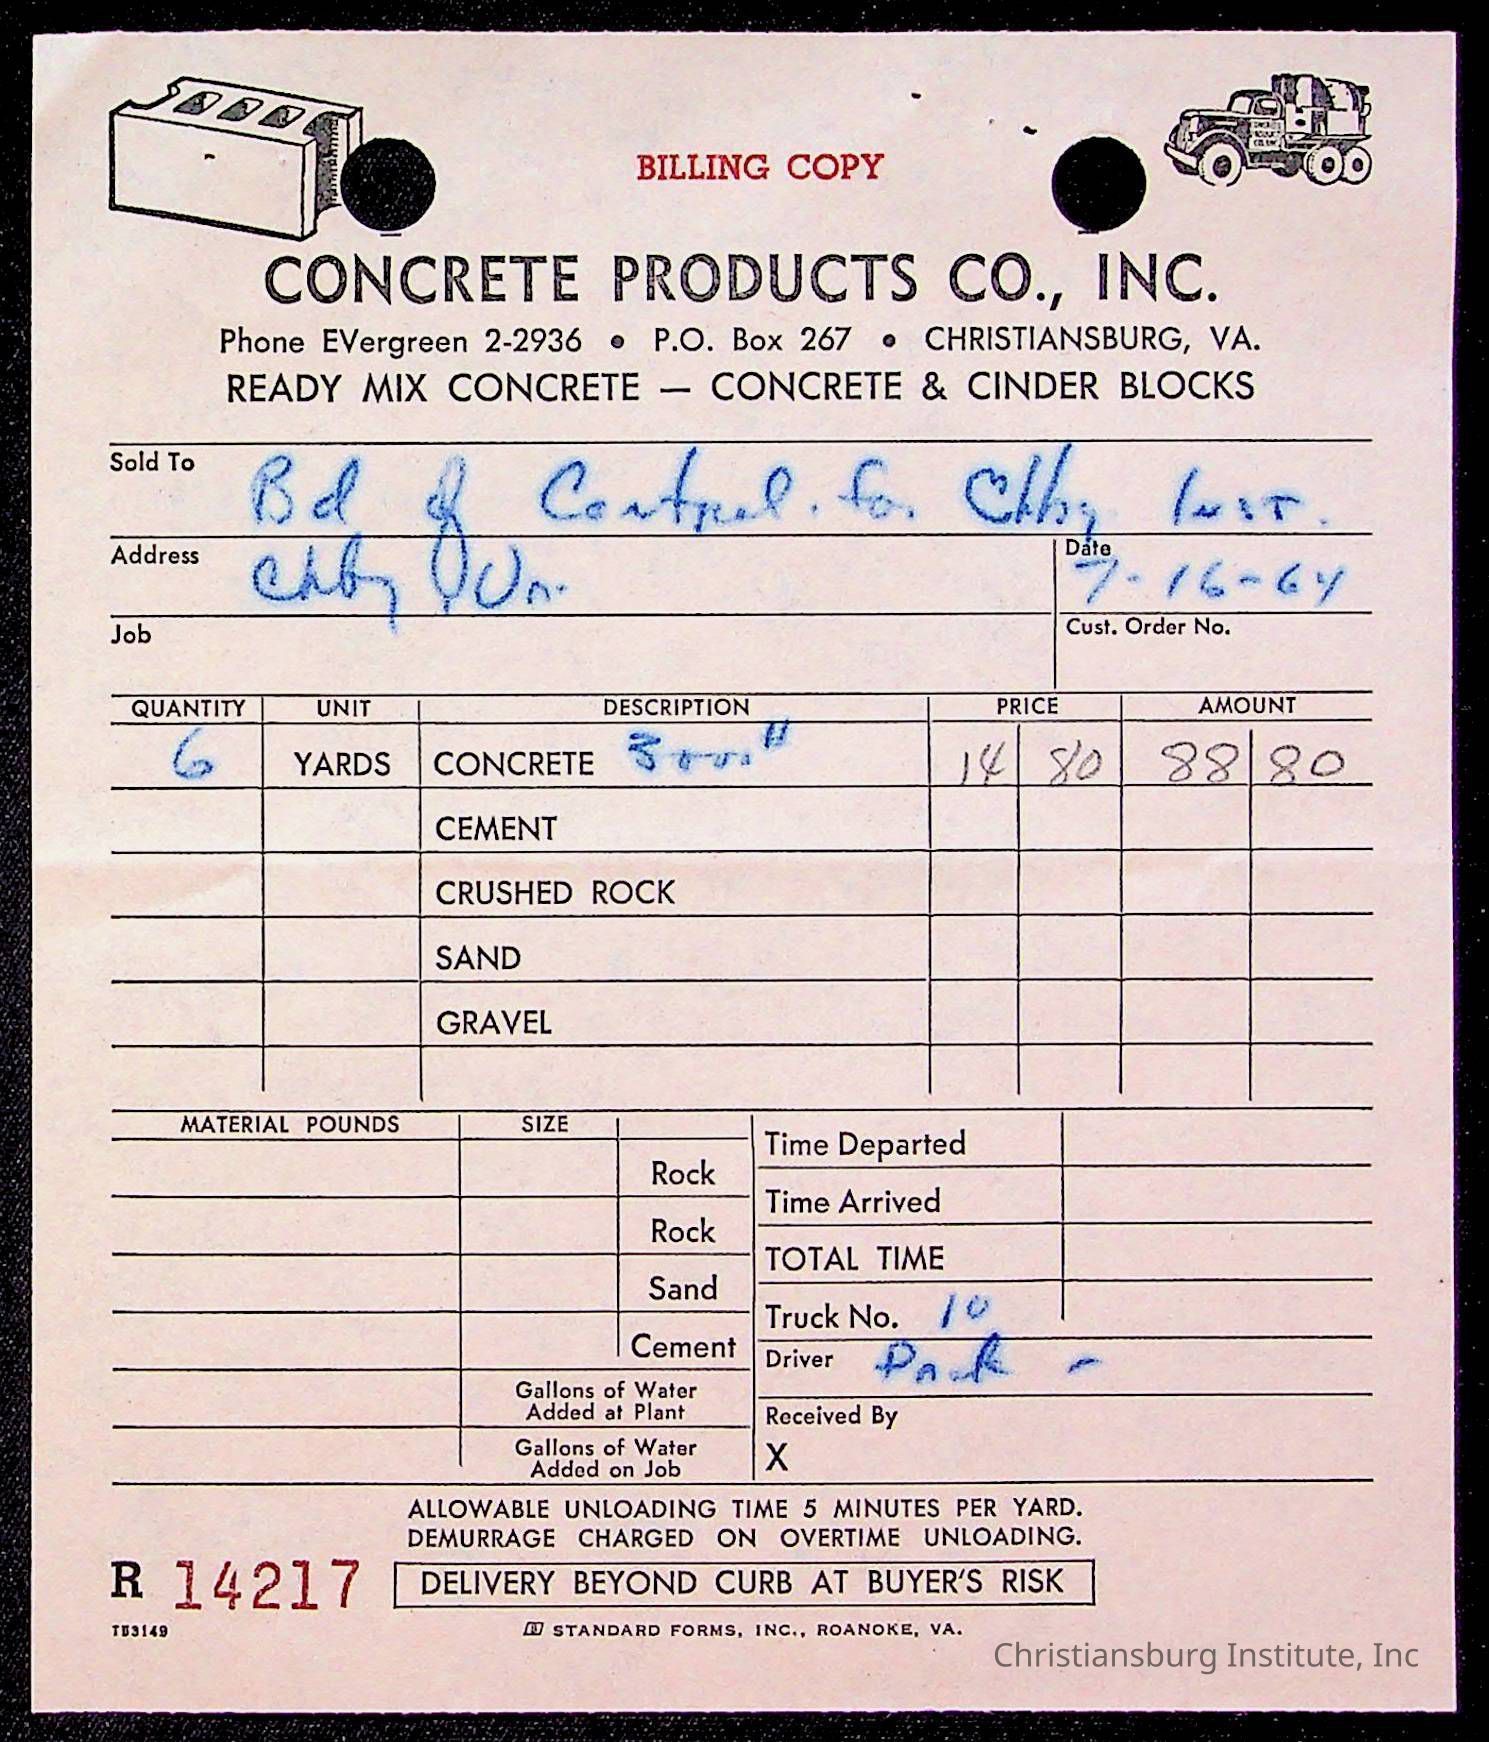 BILLING COPY
CONCRETE PRODUCTS CO., INC.
Phone EVergreen 2-2936 • P.O. Box 267 • CHRISTIANSBURG, VA.
READY MIX CONCRETE — CONCRETE & CINDER BLOCKS
Sold To Bd of Control. for Chbg Inst.
Address Chbg Va. Date 7-16-64
Job Cust. Order No.
QUANTITY UNIT DESCRIPTION PRICE AMOUNT
6 YARDS CONCRETE 3000" 14 80 88 80
CEMENT
CRUSHED ROCK
SAND
GRAVEL
MATERIAL POUNDS SIZE
Time Departed
Rock
Time Arrived
Rock
TOTAL TIME
Sand
Truck No. 10
Cement
Driver
Gallons of Water
Added at Plant
Received By
Gallons of Water
Added on Job
X
ALLOWABLE UNLOADING TIME 5 MINUTES PER YARD.
DEMURRAGE CHARGED ON OVERTIME UNLOADING.
R 14217 DELIVERY BEYOND CURB AT BUYER'S RISK
TB3149 STANDARD FORMS, INC., ROANOKE, VA.
Christiansburg Institute, Inc